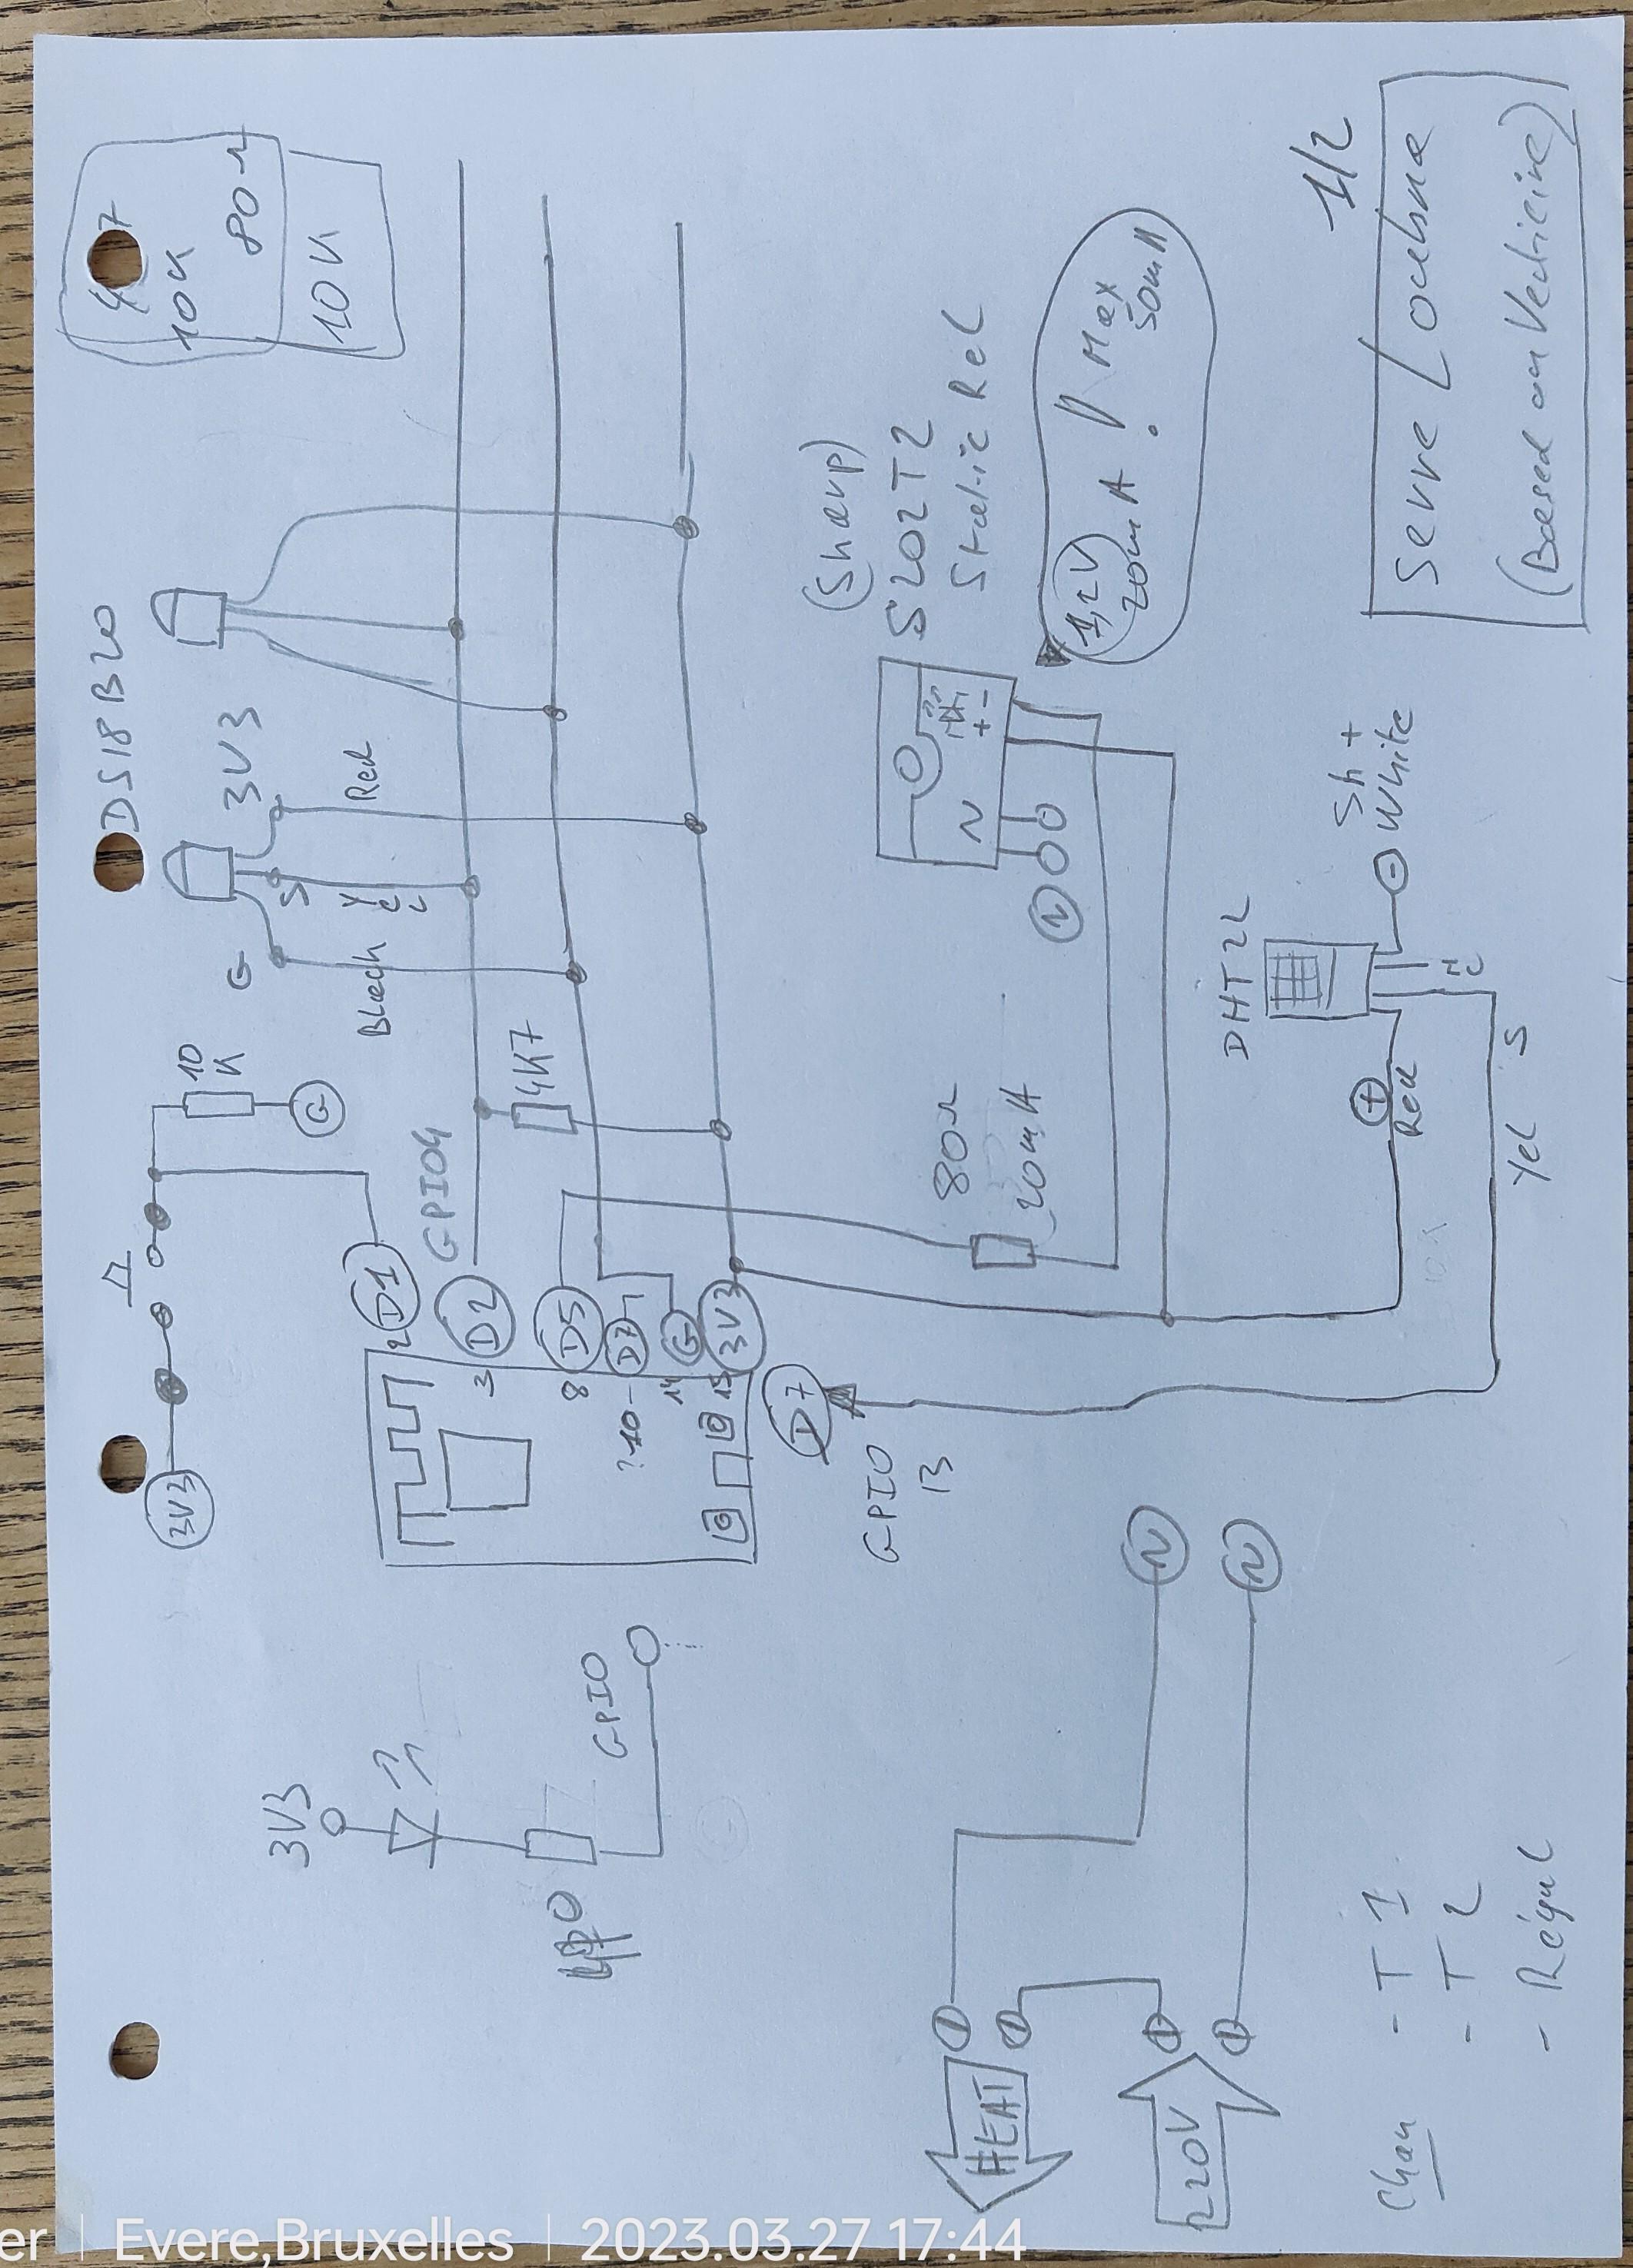 4K7
10K
80Ω
10K
DS18B20
3V3
G
S
Red
Yel
Black
10
K
G
3V3
D1
2
GPIO4
D2
3
4K7
D5
8
D7
?10
G
14
3V3
15
D7
GPIO
13
3V3
GPIO
(Sharp)
S202T2
Static Rel
+ -
N
N
1,2V
20mA ! Max
50mA
80Ω
20mA
DHT22
Sh +
White
-
NC
+
Red
Yel S
N
N
HEAT
220V
Chan
- T1
- T2
- Régul
1/2
(Based on
er | Evere,Bruxelles | 2023.03.27 17:44